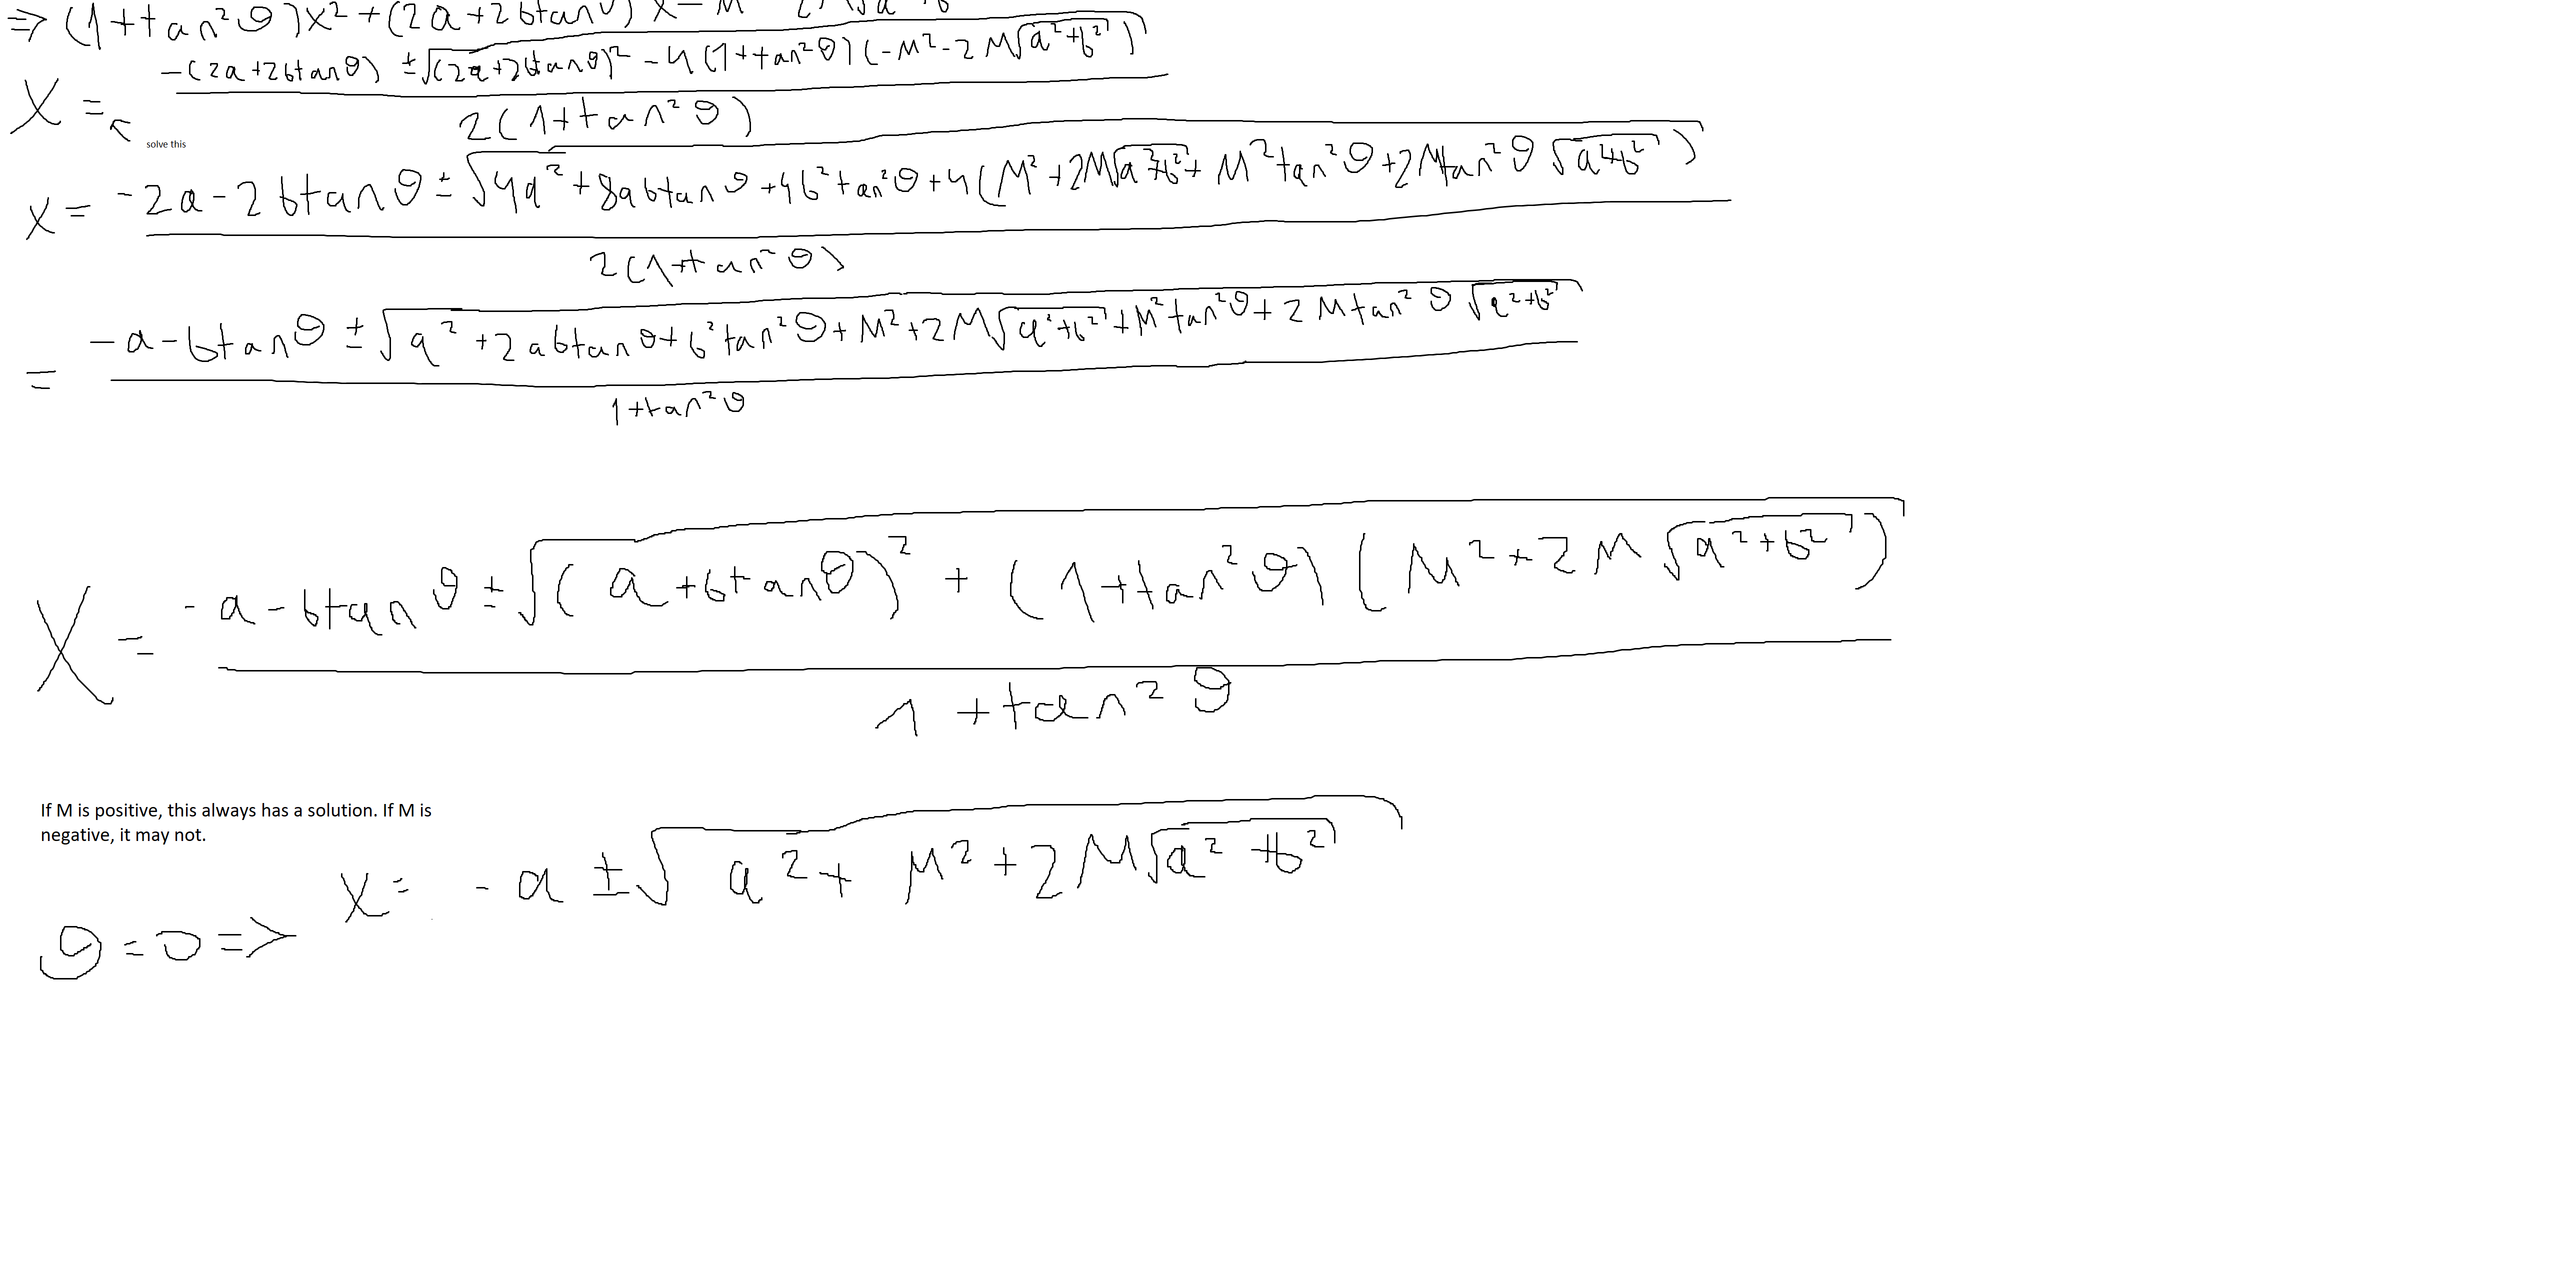 => (1+tan²θ)x²+(2a+2btanθ)x-M²
X = (-(2a+2btanθ) ± √((2a+2btanθ)² - 4(1+tan²θ)(-M²-2M√(a²+b²)))) / (2(1+tan²θ))
solve this
x = (-2a-2btanθ ± √(4a²+8abtanθ+4b²tan²θ+4(M²+2M√(a²+b²)+M²tan²θ+2Mtan²θ√(a²+b²)))) / (2(1+tan²θ))
= (-a-btanθ ± √(a²+2abtanθ+b²tan²θ+M²+2M√(a²+b²)+M²tan²θ+2Mtan²θ√(a²+b²))) / (1+tan²θ)
X = (-a-btanθ ± √((a+btanθ)² + (1+tan²θ)(M²+2M√(a²+b²)))) / (1+tan²θ)
If M is positive, this always has a solution. If M is
negative, it may not.
θ=0 => x = -a ± √(a²+M²+2M√(a²+b²))